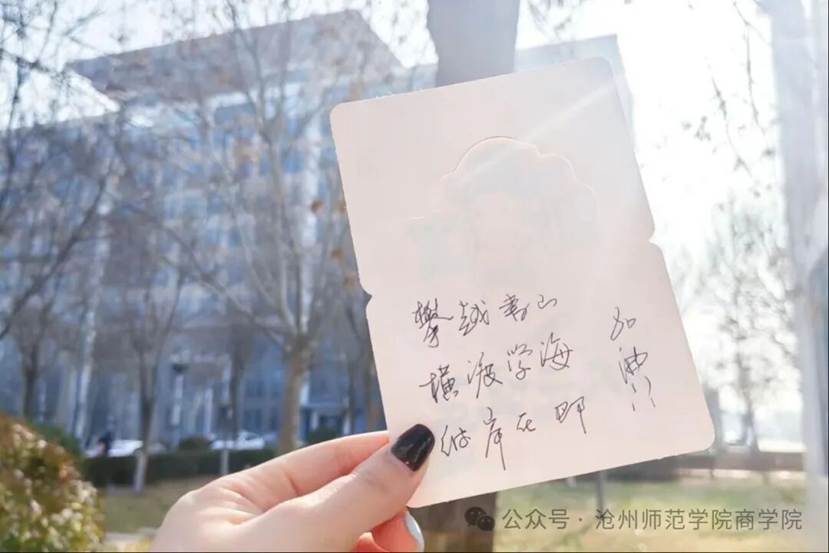 攀越书山
横渡学海
彼岸在即
加油!!
公众号·沧州师范学院商学院